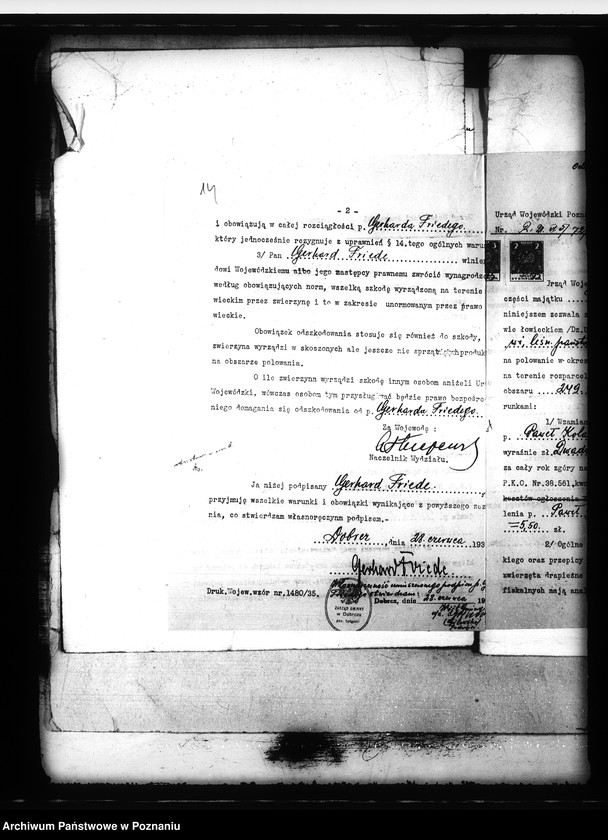 14
- 2 -
i obowiązują w całej rozciągłości p. Gerharda Friedego
który jednocześnie rezygnuje z uprawnień § 14.tego ogólnych warun
3/ Pan Gerhard Friede winien
dowi Wojewódzkiemu albo jego mastępcy prawnemu zwrócić wynagrodze
według obowiązujących norm, wszelką szkodę wyrządzoną na terenie
wieckim przez zwierzynę i to w zakresie unormowanym przez prawo
wieckie.
Obowiązek odszkodowania stosuje się również do szkody,
zwierzyna wyrządzi w skoszonych ale jeszcze nie sprzątniętych produk
na obszarze polowania.
O ile zwierzyna wyrządzi szkodę innym osobom aniżeli Ur
Wojewódzki, wówczas osobom tym przysługiwać będzie prawo bezpośre
niego domagania się odszkodowania od p. Gerharda Friedego
Za Wojewodę :
Naczelnik Wydziału.
Ja niżej podpisany Gerhard Friede
przyjmuję wszelkie warunki i obowiązki wynikające z powyższego zez
nia, co stwierdzam własnoręcznym podpisem.-
Dobrcz, dnia 28 czerwca 193
Gerhard Friede
Własnoręczność umieszczonego podpisu p. G
Friedego stwierdzam:
Druk.Wojew.wzór nr.1480/35.
Dobrcz, dnie 28. czerwca 19
ZARZĄD GMINY
w Dobrczu
pow. bydgoski
Urząd Wojewódzki Pozn
Nr.
Urząd Woje
części majątku
niniejszem zezwala
wie łowieckiem /Dz.U
na polowanie w okres
na terenie rozparcel
obszaru 249.
runkami:
1/ Wzamian
p. Paweł
wyraźnie zł.
za cały rok zgóry na
P.K.O. Nr.38.561
kosztów ogłoszenia
lenia p. Paweł
=5,50.- zł.
2/ Ogólne
kiego oraz przepisy
zwierzęta drapieżne
fiskalnych mają ana
Archiwum Państwowe w Poznaniu